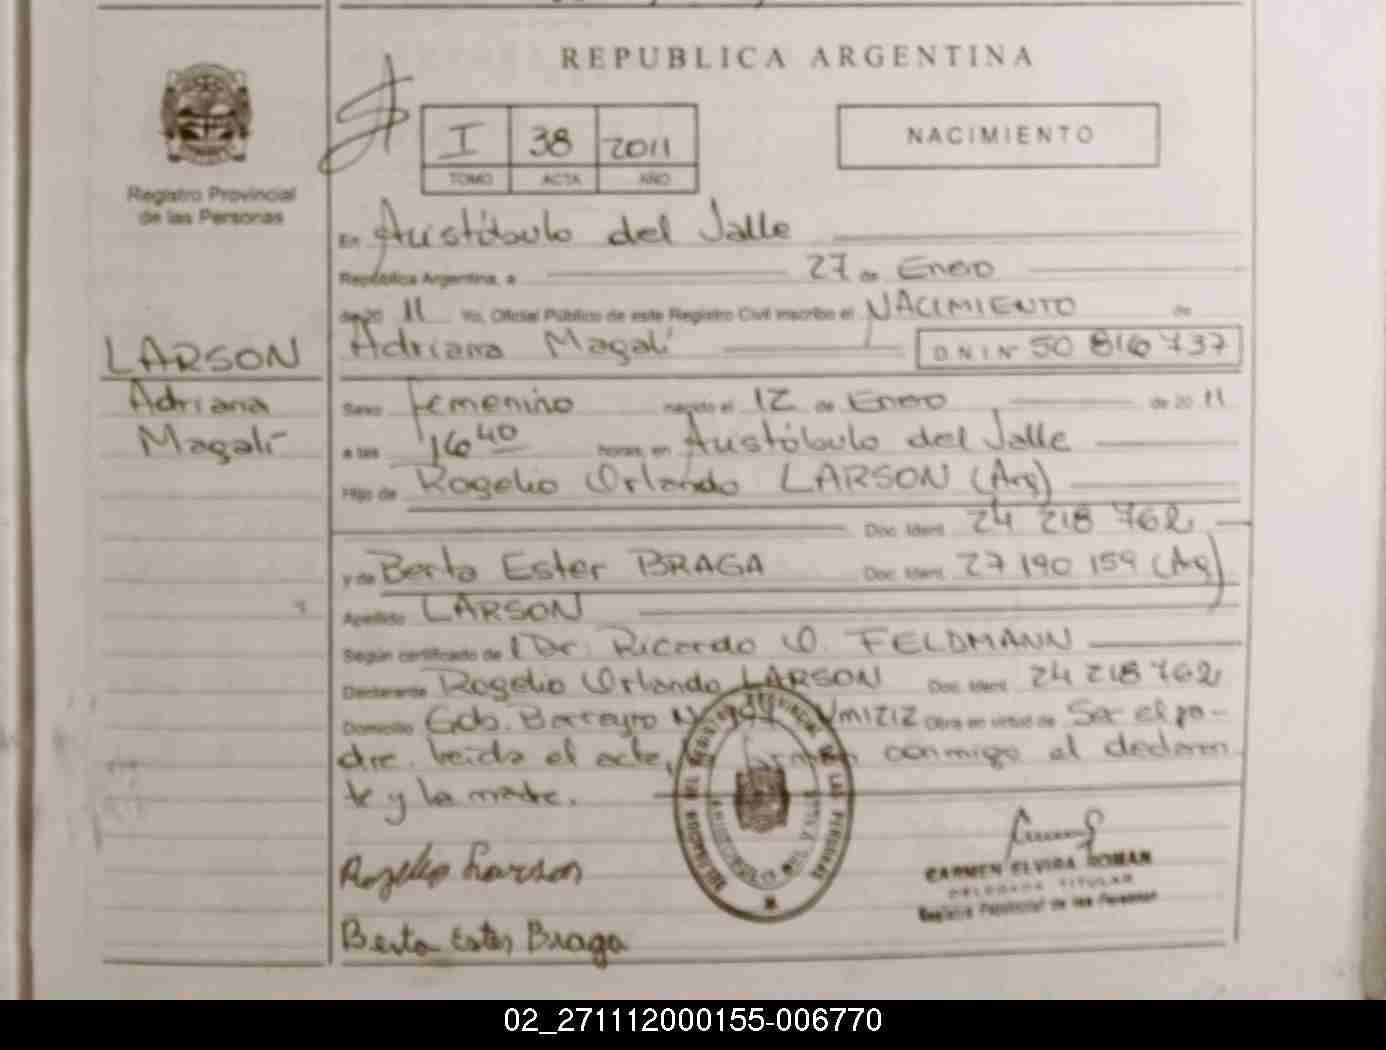 REPUBLICA ARGENTINA
I 38 2011
TOMO ACTA AÑO
NACIMIENTO
Registro Provincial
de las Personas
LARSON
Adriana
Magalí
En Aristóbulo del Valle
República Argentina, a 27 de Enero
de 20 11 Yo, Oficial Público de este Registro Civil inscribo el NACIMIENTO de
Adriana Magalí D N I Nº 50 816 737
Sexo femenino nacido el 12 de Enero de 20 11
a las 16 40 horas, en Aristóbulo del Valle
Hijo de Rogelio Orlando LARSON (Arg)
Doc. Ident. 24 218 762
y de Berta Ester BRAGA Doc. Ident. 27 190 159 (Arg)
Apellido LARSON
Según certificado de Dr. Ricardo O. FELDMANN
Declarante Rogelio Orlando LARSON Doc. Ident. 24 218 762
Domicilio Gdo. Barreyro Obra en virtud de Ser el pa-
dre. Leída el acta, firman conmigo el declaran
te y la madre.
Rogelio Larson
Berta Ester Braga
CARMEN ELVIRA ROMAN
DELEGADA TITULAR
Registro Provincial de las Personas
02_271112000155-006770